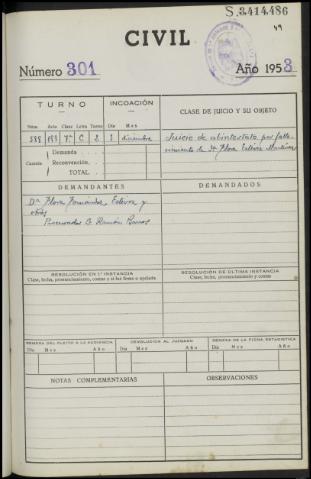 S.3.414.486
49
CIVIL
Número 301
Año 1953
TURNO
INCOACIÓN
CLASE DE JUICIO Y SU OBJETO
Núm. Año Clase Letra Turno Día Mes
C 2 diciembre
Juicio de abintestato por falle-
cimiento de Dª Flora
Cuantía
Demanda
Reconvención
TOTAL
DEMANDANTES
DEMANDADOS
Dª Flora Fernández y
otros
Procurador D. Ramón
RESOLUCIÓN EN 1ª INSTANCIA
Clase, fecha, pronunciamiento, costas y si fue firme o apelada
RESOLUCIÓN DE ÚLTIMA INSTANCIA
Clase, fecha, pronunciamiento y costas
REMESA DEL PLEITO A LA AUDIENCIA
DEVOLUCIÓN AL JUZGADO
REMESA DE LA FICHA ESTADÍSTICA
Día Mes Año Día Mes Año Día Mes Año
NOTAS COMPLEMENTARIAS
OBSERVACIONES